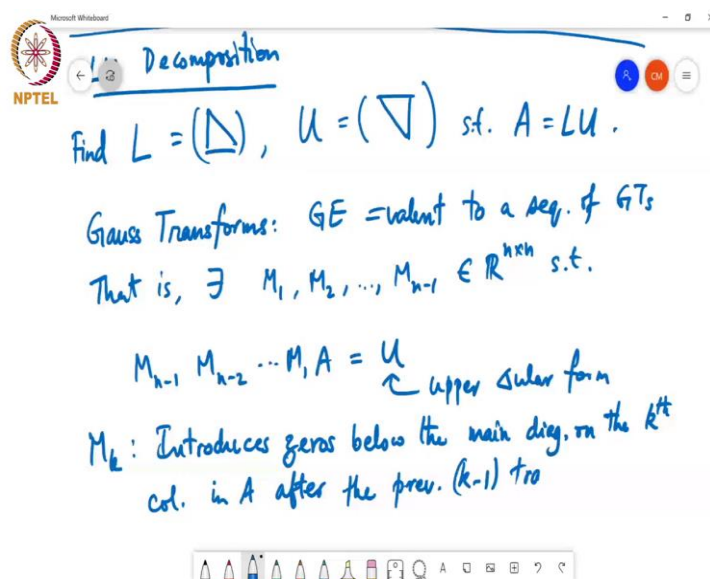 Microsoft Whiteboard
Decomposition
CM
NPTEL
Find L = (◺), U = (▽) s.t. A = LU.
Gauss Transforms: GE ≡valent to a seq. of GTs
That is, ∃ M₁, M₂, ..., Mₙ₋₁ ∈ ℝⁿˣⁿ s.t.
Mₙ₋₁ Mₙ₋₂ ⋯ M₁ A = U
upper Δular form
Mₖ : Introduces zeros below the main diag. on the kᵗʰ
col. in A after the prev. (k-1) tra